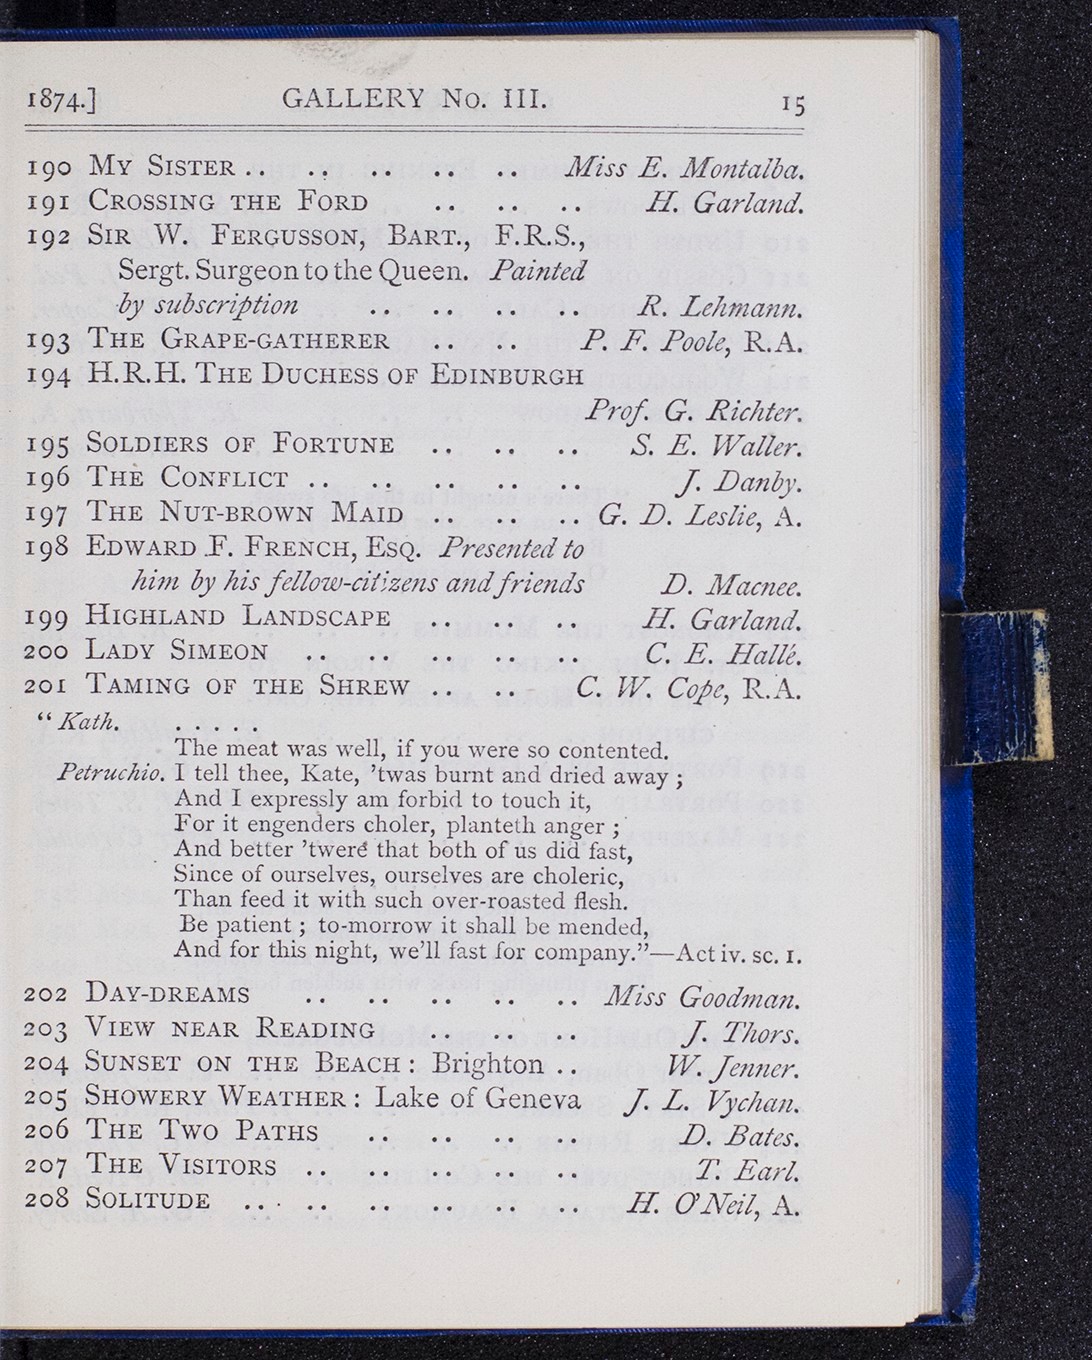 1874.] GALLERY No. III. 15
190 MY SISTER .. .. .. .. .. Miss E. Montalba.
191 CROSSING THE FORD .. .. .. H. Garland.
192 SIR W. FERGUSSON, BART., F.R.S.,
Sergt. Surgeon to the Queen. Painted
by subscription .. .. .. .. R. Lehmann.
193 THE GRAPE-GATHERER .. .. P. F. Poole, R.A.
194 H.R.H. THE DUCHESS OF EDINBURGH
Prof. G. Richter.
195 SOLDIERS OF FORTUNE .. .. .. S. E. Waller.
196 THE CONFLICT .. .. .. .. .. J. Danby.
197 THE NUT-BROWN MAID .. .. .. G. D. Leslie, A.
198 EDWARD F. FRENCH, ESQ. Presented to
him by his fellow-citizens and friends D. Macnee.
199 HIGHLAND LANDSCAPE .. .. .. H. Garland.
200 LADY SIMEON .. .. .. .. .. C. E. Hallé.
201 TAMING OF THE SHREW .. .. C. W. Cope, R.A.
“Kath. . . . . .
The meat was well, if you were so contented.
Petruchio. I tell thee, Kate, ’twas burnt and dried away ;
And I expressly am forbid to touch it,
For it engenders choler, planteth anger ;
And better ’twere that both of us did fast,
Since of ourselves, ourselves are choleric,
Than feed it with such over-roasted flesh.
Be patient ; to-morrow it shall be mended,
And for this night, we’ll fast for company.”—Act iv. sc. 1.
202 DAY-DREAMS .. .. .. .. .. Miss Goodman.
203 VIEW NEAR READING .. .. .. J. Thors.
204 SUNSET ON THE BEACH : Brighton .. W. Jenner.
205 SHOWERY WEATHER : Lake of Geneva J. L. Vychan.
206 THE TWO PATHS .. .. .. .. D. Bates.
207 THE VISITORS .. .. .. .. .. T. Earl.
208 SOLITUDE .. .. .. .. .. .. H. O’Neil, A.